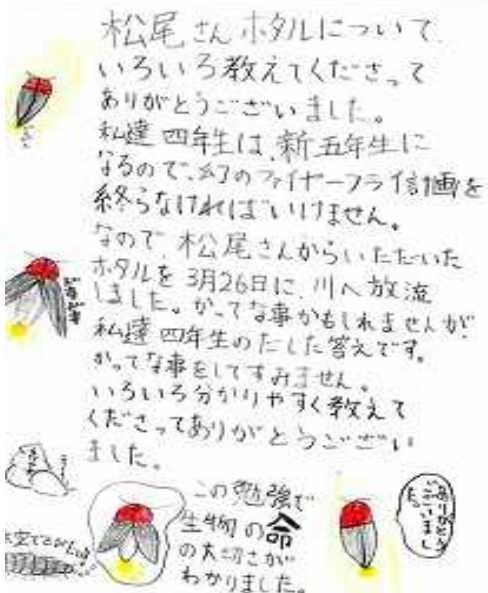 松尾さん ホタルについて
いろいろ教えてくださって
ありがとうございました。
私達四年生は、新五年生に
なるので、幻のファイヤーフライ計画を
終らなければいけません。
なので 松尾さんからいただいた
ホタルを 3月26日に、川へ放流
しました。かってな事かもしれませんが
私達四年生のだした答えです。
かってな事をしてすみません。
いろいろ分かりやすく教えて
くださってありがとうござい
ました。
この勉強で
生物の命
の大切さが
わかりました。
ありがとう
ございまし
た。